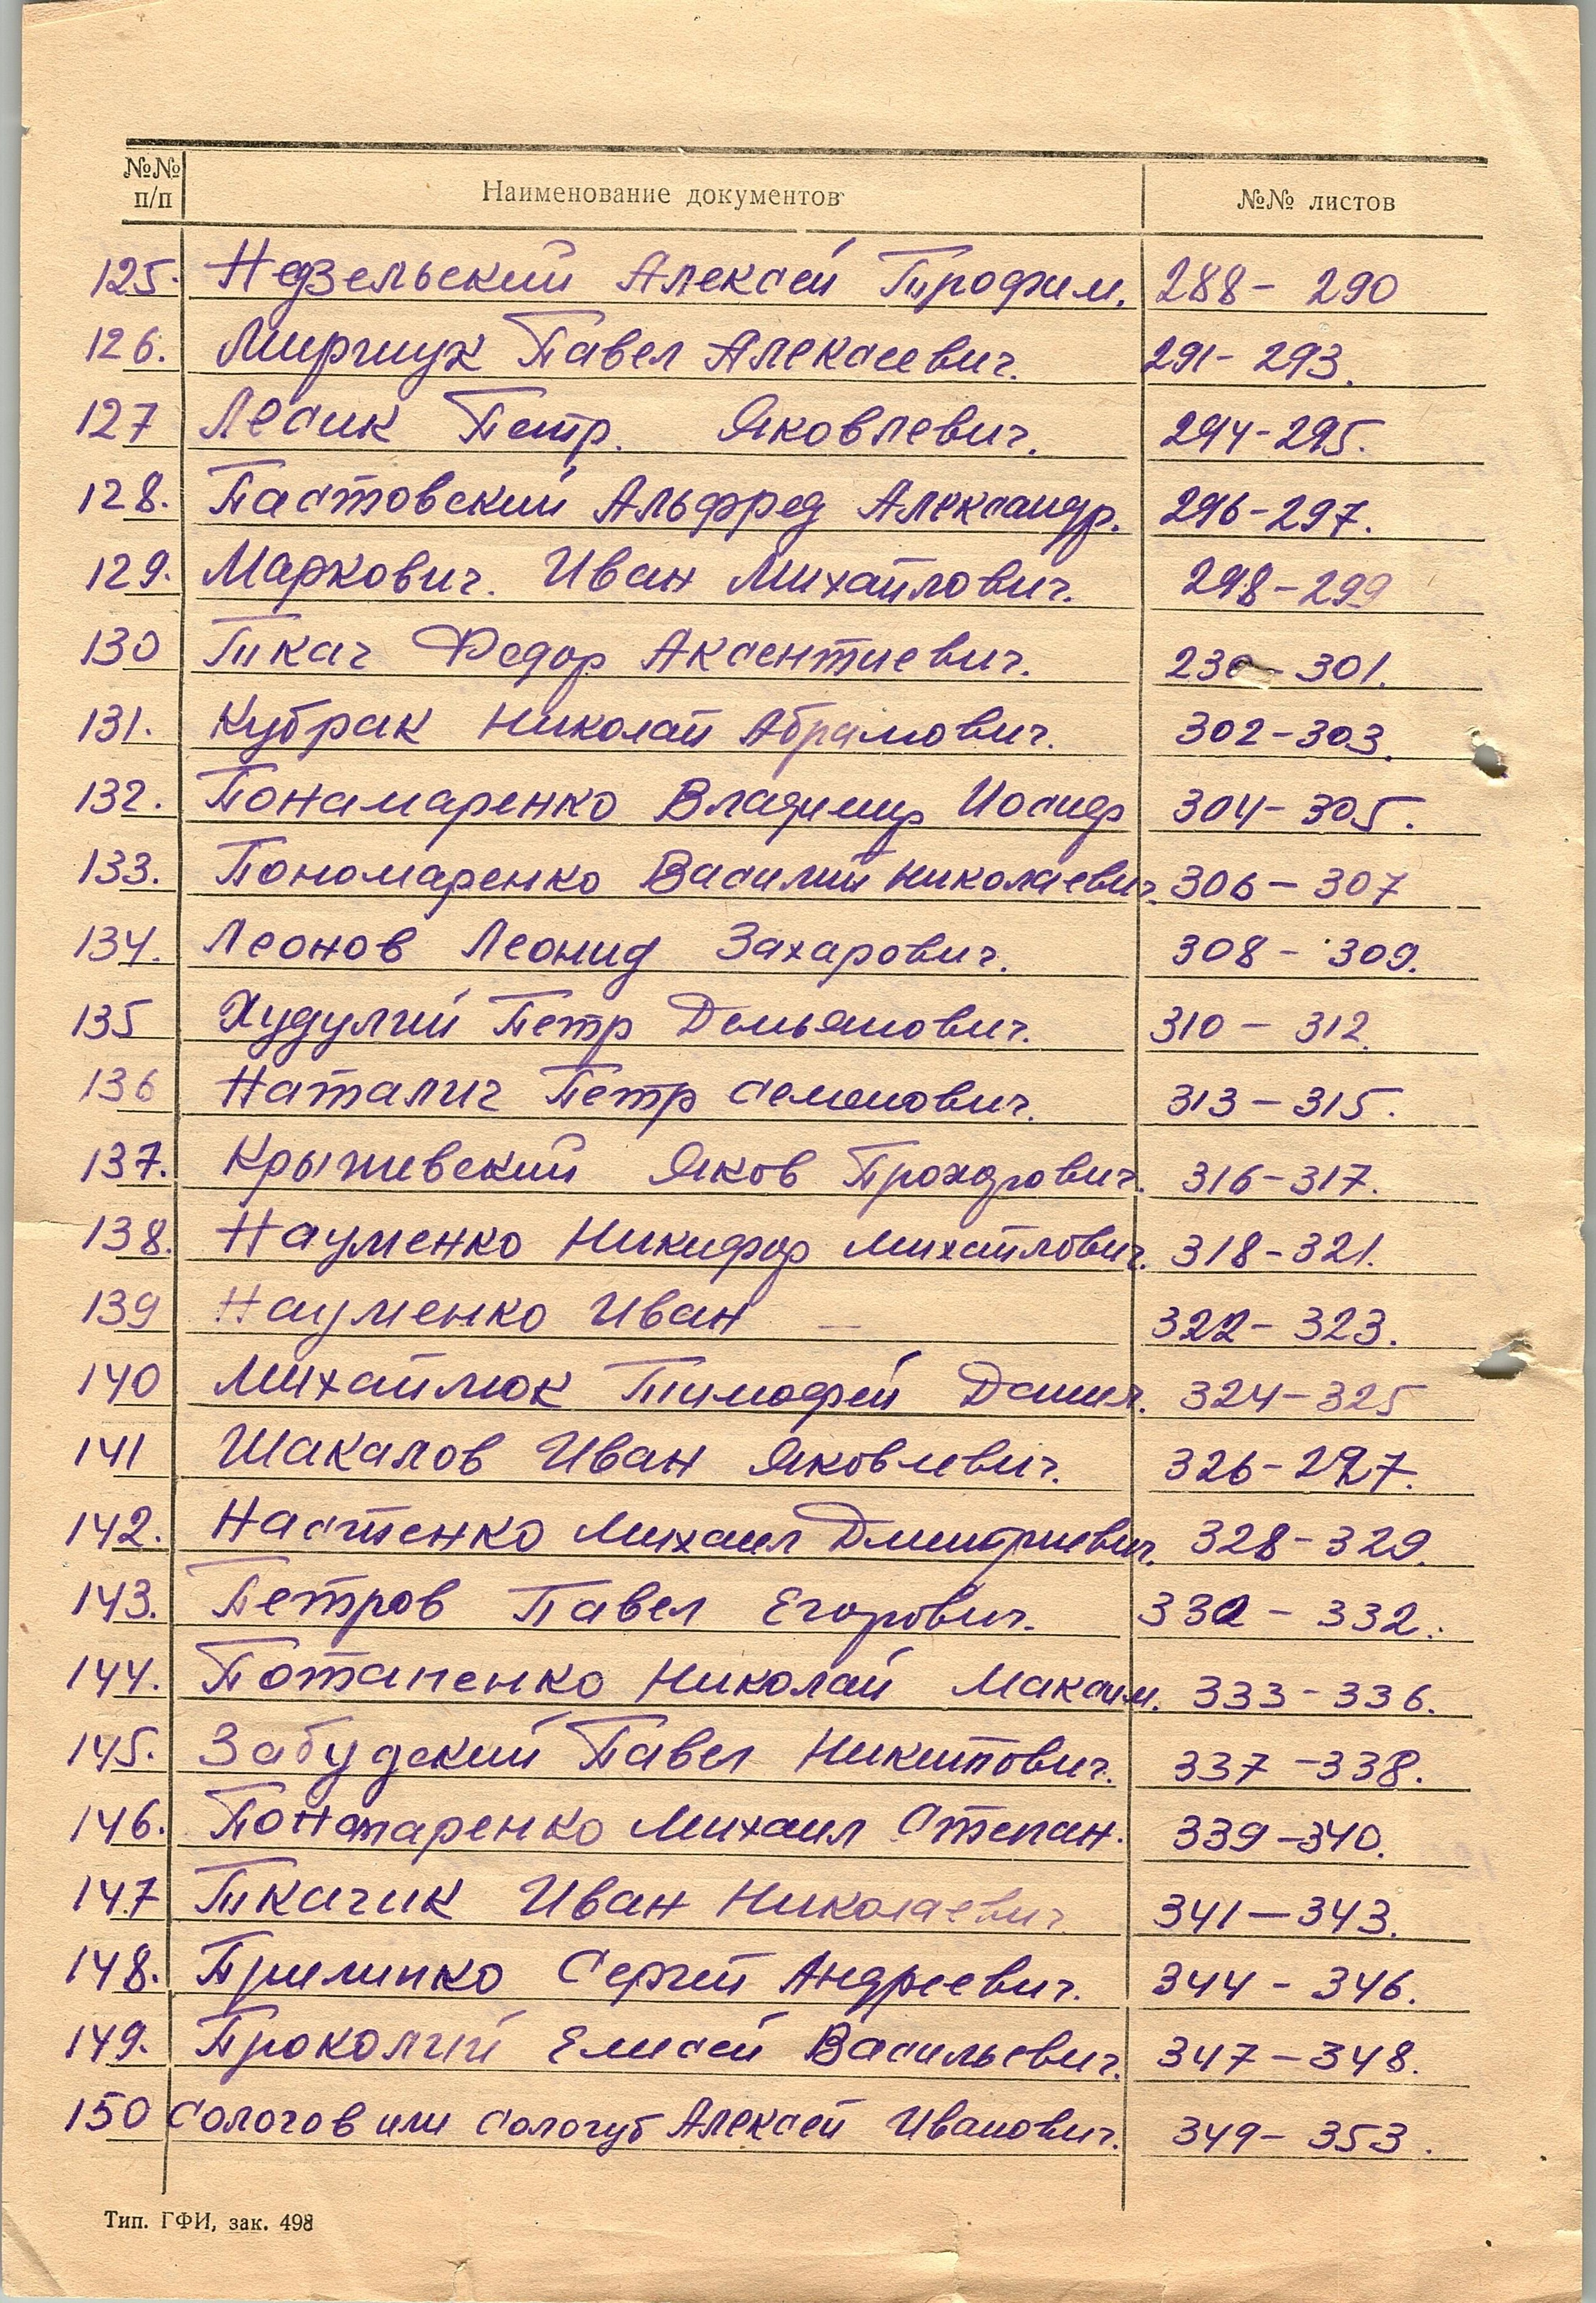 №№ п/п Наименование документов №№ листов
125. Недзельский Алексей Трофим. 288 - 290
126. Мирчук Павел Алексеевич. 291 - 293.
127 Лесик Петр. Яковлевич. 294-295.
128. Пастовский Альфред Александр. 296-297.
129. Маркович. Иван Михайлович. 298-299
130 Ткач Федор Аксентиевич. 230-301.
131. Кубрак Николай Абрамович. 302-303.
132. Понамаренко Владимир Иосиф 304-305.
133. Пономаренко Василий Николаевич. 306-307
134. Леонов Леонид Захарович. 308 - 309.
135 Худулий Петр Демьянович. 310 - 312.
136 Наталич Петр Семенович. 313 - 315.
137. Крыжевский Яков Прохорович. 316-317.
138. Науменко Никифор Михайлович. 318-321.
139 Науменко Иван — 322-323.
140 Михайлюк Тимофей Данил. 324-325
141 Шакалов Иван Яковлевич. 326-297.
142. Настенко Михаил Дмитриевич. 328-329.
143. Петров Павел Егорович. 332 - 332.
144. Потапенко Николай Максим. 333-336.
145. Забудский Павел Никитович. 337-338.
146. Понамаренко Михаил Степан. 339-340.
147 Ткачик Иван Николаевич 341-343.
148. Прилипко Сергей Андреевич. 344 - 346.
149. Проколий Елисей Васильевич. 347-348.
150 Сологов или Сологуб Алексей Иванович. 349-353.
Тип. ГФИ, зак. 498